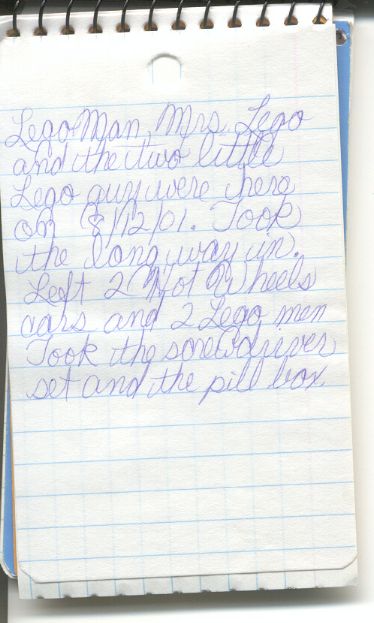 Lego Man, Mrs. Lego
and the two little
Lego guy were here
on 8/12/01. Took
the long way in.
Left 2 Hot Wheels
cars and 2 Lego men
Took the screwdriver
set and the pill box